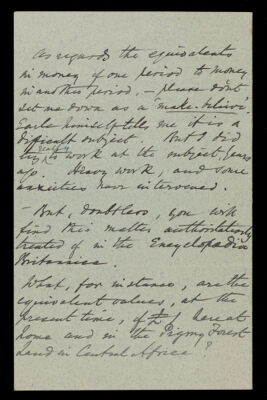 As regards the equivalents
in money of one period to money
in another period, — please don't
set me down as a 'make-believe'.
Earle himself tells me it is a
difficult subject. But I did
try to work at the subject, years
ago. Heavy work, and some
anxieties have intervened.
— But, doubtless, you will
find this matter authoritatively
treated of in the Encyclopædia
Britannica.
What, for instance, are the
equivalent values, at the
present time, of £1 here at
home and in the Pigmy Forest
land in Central Africa?